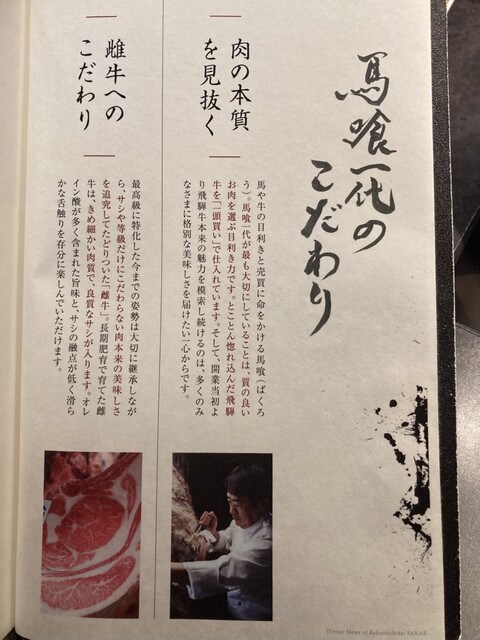 馬喰一代の
こだわり
肉の本質
を見抜く
馬や牛の目利きと売買に命をかける馬喰（ばくろ
う）。馬喰一代が最も大切にしていることは、質の良い
お肉を選ぶ目利き力です。とことん惚れ込んだ飛騨
牛を「一頭買い」で仕入れています。そして、開業当初よ
り飛騨牛本来の魅力を模索し続けるのは、多くのみ
なさまに格別な美味しさを届けたい一心からです。
雌牛への
こだわり
最高級に特化した今までの姿勢は大切に継承しなが
ら、サシや等級だけにこだわらない肉本来の美味しさ
を追究してたどりついた「雌牛」。長期肥育で育てた雌
牛は、きめ細かい肉質で、良質なサシが入ります。オレ
イン酸が多く含まれた旨味と、サシの融点が低く滑ら
かな舌触りを存分に楽しんでいただけます。
Dinner Menu of Bakuroichidai